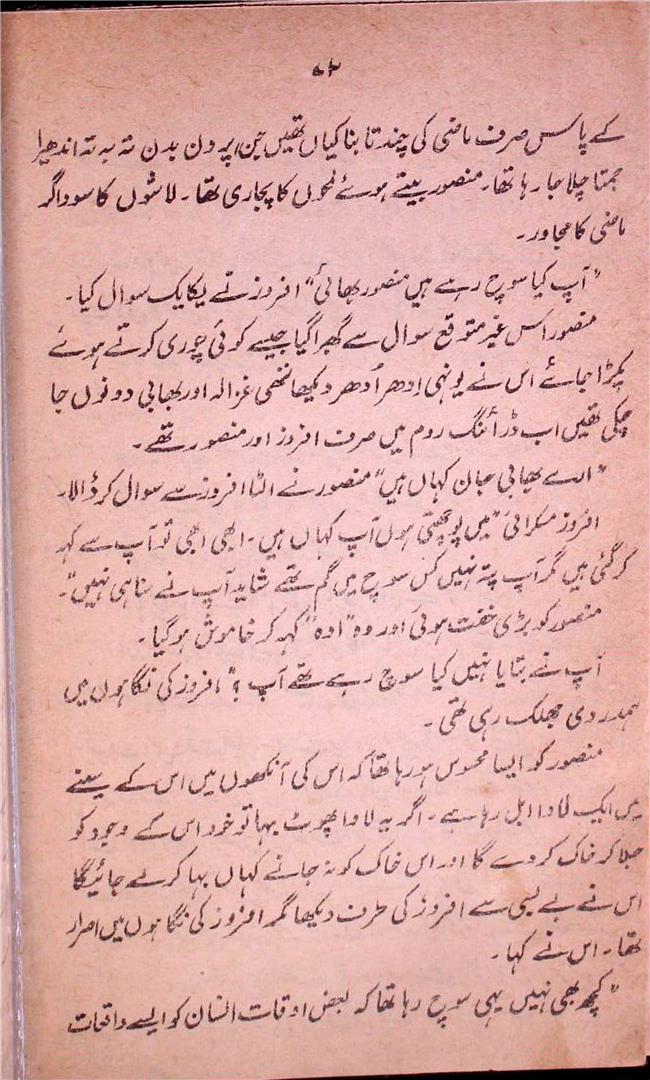 ۸۲
کے پاس صرف ماضی کی چند تابناکیاں تھیں جن پر دن بدن تہ بہ تہ اندھیرا
جمتا چلا جا رہا تھا۔ منصور بیتے ہوئے لمحوں کا پجاری تھا۔ لاشوں کا سوداگر
ماضی کا مجاور۔
"آپ کیا سوچ رہے ہیں منصور بھائی" افروز نے یکایک سوال کیا۔
منصور اس غیر متوقع سوال سے گھبرا گیا جیسے کوئی چوری کرتے ہوئے
پکڑا جائے اس نے یونہی ادھر اُدھر دیکھا ننھی غزالہ اور بھابی دونوں جا
چکی تھیں اب ڈرائنگ روم میں صرف افروز اور منصور تھے۔
"ارے بھابی جان کہاں ہیں" منصور نے الٹا افروز سے سوال کر ڈالا۔
افروز مسکرائی "میں پوچھتی ہوں آپ کہاں ہیں۔ ابھی ابھی تو آپ سے کہہ
کر گئی ہیں مگر آپ پتہ نہیں کس سوچ میں گم تھے شاید آپ نے سنا ہی نہیں"۔
منصور کو بڑی خفت ہوئی اور وہ "اوہ" کہہ کر خاموش ہو گیا۔
آپ نے بتایا نہیں کیا سوچ رہے تھے آپ ؟" افروز کی نگاہوں میں
ہمدردی جھلک رہی تھی۔
منصور کو ایسا محسوس ہو رہا تھا کہ اس کی آنکھوں میں اس کے سینے
میں ایک لاوا ابل رہا ہے۔ اگر یہ لاوا پھوٹ بہا تو خود اس کے وجود کو
جلا کر خاک کر دے گا اور اس خاک کو نہ جانے کہاں بہا کر لے جائیگا
اس نے بے بسی سے افروز کی طرف دیکھا مگر افروز کی نگاہوں میں اصرار
تھا۔ اس نے کہا۔
"کچھ بھی نہیں یہی سوچ رہا تھا کہ بعض اوقات انسان کو ایسے واقعات